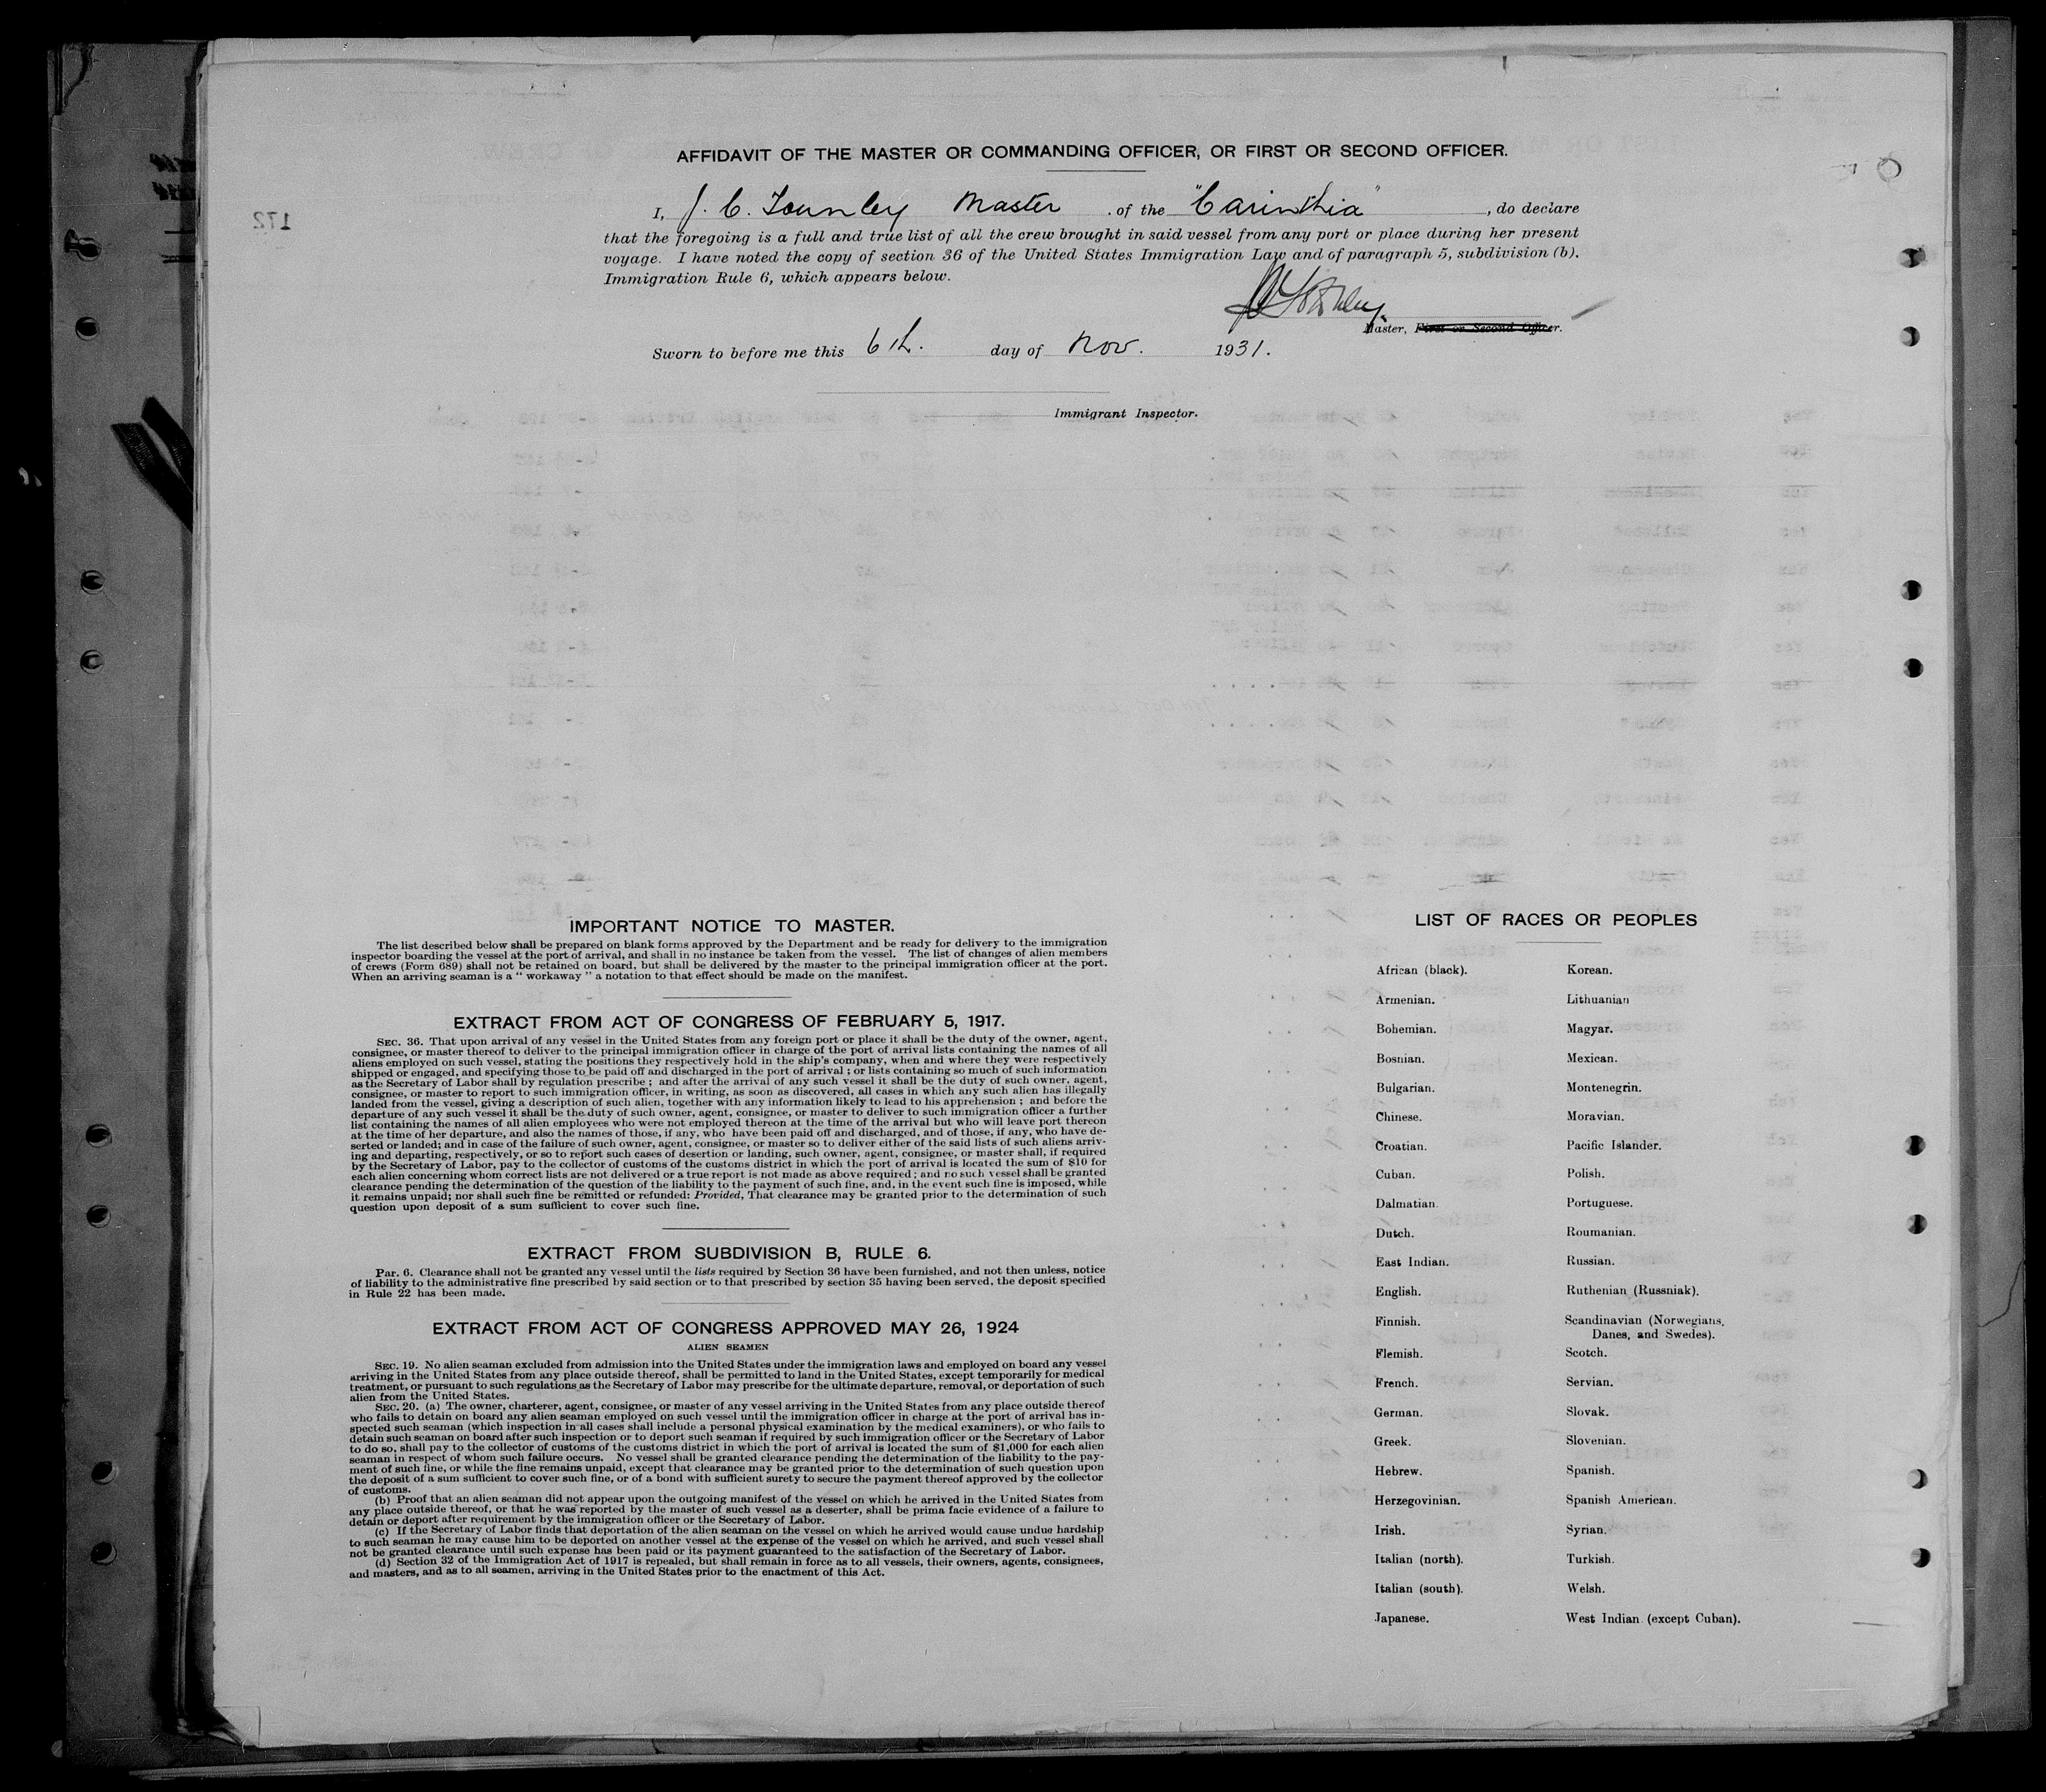 AFFIDAVIT OF THE MASTER OR COMMANDING OFFICER, OR FIRST OR SECOND OFFICER.
I, J. C. Townley Master of the "Carinthia", do declare
that the foregoing is a full and true list of all the crew brought in said vessel from any port or place during her present
voyage. I have noted the copy of section 36 of the United States Immigration Law and of paragraph 5, subdivision (b).
Immigration Rule 6, which appears below.
Master, First or Second Officer.
Sworn to before me this 6th. day of Nov. 1931.
Immigrant Inspector.
172
IMPORTANT NOTICE TO MASTER.
The list described below shall be prepared on blank forms approved by the Department and be ready for delivery to the immigration
inspector boarding the vessel at the port of arrival, and shall in no instance be taken from the vessel. The list of changes of alien members
of crews (Form 689) shall not be retained on board, but shall be delivered by the master to the principal immigration officer at the port.
When an arriving seaman is a " workaway " a notation to that effect should be made on the manifest.
EXTRACT FROM ACT OF CONGRESS OF FEBRUARY 5, 1917.
SEC. 36. That upon arrival of any vessel in the United States from any foreign port or place it shall be the duty of the owner, agent,
consignee, or master thereof to deliver to the principal immigration officer in charge of the port of arrival lists containing the names of all
aliens employed on such vessel, stating the positions they respectively hold in the ship's company, when and where they were respectively
shipped or engaged, and specifying those to be paid off and discharged in the port of arrival ; or lists containing so much of such information
as the Secretary of Labor shall by regulation prescribe ; and after the arrival of any such vessel it shall be the duty of such owner, agent,
consignee, or master to report to such immigration officer, in writing, as soon as discovered, all cases in which any such alien has illegally
landed from the vessel, giving a description of such alien, together with any information likely to lead to his apprehension ; and before the
departure of any such vessel it shall be the duty of such owner, agent, consignee, or master to deliver to such immigration officer a further
list containing the names of all alien employees who were not employed thereon at the time of the arrival but who will leave port thereon
at the time of her departure, and also the names of those, if any, who have been paid off and discharged, and of those, if any, who have de-
serted or landed; and in case of the failure of such owner, agent, consignee, or master so to deliver either of the said lists of such aliens arriv-
ing and departing, respectively, or so to report such cases of desertion or landing, such owner, agent, consignee, or master shall, if required
by the Secretary of Labor, pay to the collector of customs of the customs district in which the port of arrival is located the sum of $10 for
each alien concerning whom correct lists are not delivered or a true report is not made as above required ; and no such vessel shall be granted
clearance pending the determination of the question of the liability to the payment of such fine, and, in the event such fine is imposed, while
it remains unpaid; nor shall such fine be remitted or refunded: Provided, That clearance may be granted prior to the determination of such
question upon deposit of a sum sufficient to cover such fine.
EXTRACT FROM SUBDIVISION B, RULE 6.
Par. 6. Clearance shall not be granted any vessel until the lists required by Section 36 have been furnished, and not then unless, notice
of liability to the administrative fine prescribed by said section or to that prescribed by section 35 having been served, the deposit specified
in Rule 22 has been made.
EXTRACT FROM ACT OF CONGRESS APPROVED MAY 26, 1924
ALIEN SEAMEN
SEC. 19. No alien seaman excluded from admission into the United States under the immigration laws and employed on board any vessel
arriving in the United States from any place outside thereof, shall be permitted to land in the United States, except temporarily for medical
treatment, or pursuant to such regulations as the Secretary of Labor may prescribe for the ultimate departure, removal, or deportation of such
alien from the United States.
SEC. 20. (a) The owner, charterer, agent, consignee, or master of any vessel arriving in the United States from any place outside thereof
who fails to detain on board any alien seaman employed on such vessel until the immigration officer in charge at the port of arrival has in-
spected such seaman (which inspection in all cases shall include a personal physical examination by the medical examiners), or who fails to
detain such seaman on board after such inspection or to deport such seaman if required by such immigration officer or the Secretary of Labor
to do so, shall pay to the collector of customs of the customs district in which the port of arrival is located the sum of $1,000 for each alien
seaman in respect of whom such failure occurs. No vessel shall be granted clearance pending the determination of the liability to the pay-
ment of such fine, or while the fine remains unpaid, except that clearance may be granted prior to the determination of such question upon
the deposit of a sum sufficient to cover such fine, or of a bond with sufficient surety to secure the payment thereof approved by the collector
of customs.
(b) Proof that an alien seaman did not appear upon the outgoing manifest of the vessel on which he arrived in the United States from
any place outside thereof, or that he was reported by the master of such vessel as a deserter, shall be prima facie evidence of a failure to
detain or deport after requirement by the immigration officer or the Secretary of Labor.
(c) If the Secretary of Labor finds that deportation of the alien seaman on the vessel on which he arrived would cause undue hardship
to such seaman he may cause him to be deported on another vessel at the expense of the vessel on which he arrived, and such vessel shall
not be granted clearance until such expense has been paid or its payment guaranteed to the satisfaction of the Secretary of Labor.
(d) Section 32 of the Immigration Act of 1917 is repealed, but shall remain in force as to all vessels, their owners, agents, consignees,
and masters, and as to all seamen, arriving in the United States prior to the enactment of this Act.
LIST OF RACES OR PEOPLES
African (black). Korean.
Armenian. Lithuanian
Bohemian. Magyar.
Bosnian. Mexican.
Bulgarian. Montenegrin.
Chinese. Moravian.
Croatian. Pacific Islander.
Cuban. Polish.
Dalmatian. Portuguese.
Dutch. Roumanian.
East Indian. Russian.
English. Ruthenian (Russniak).
Finnish. Scandinavian (Norwegians,
Danes, and Swedes).
Flemish. Scotch.
French. Servian.
German. Slovak.
Greek. Slovenian.
Hebrew. Spanish.
Herzegovinian. Spanish American.
Irish. Syrian.
Italian (north). Turkish.
Italian (south). Welsh.
Japanese. West Indian (except Cuban).